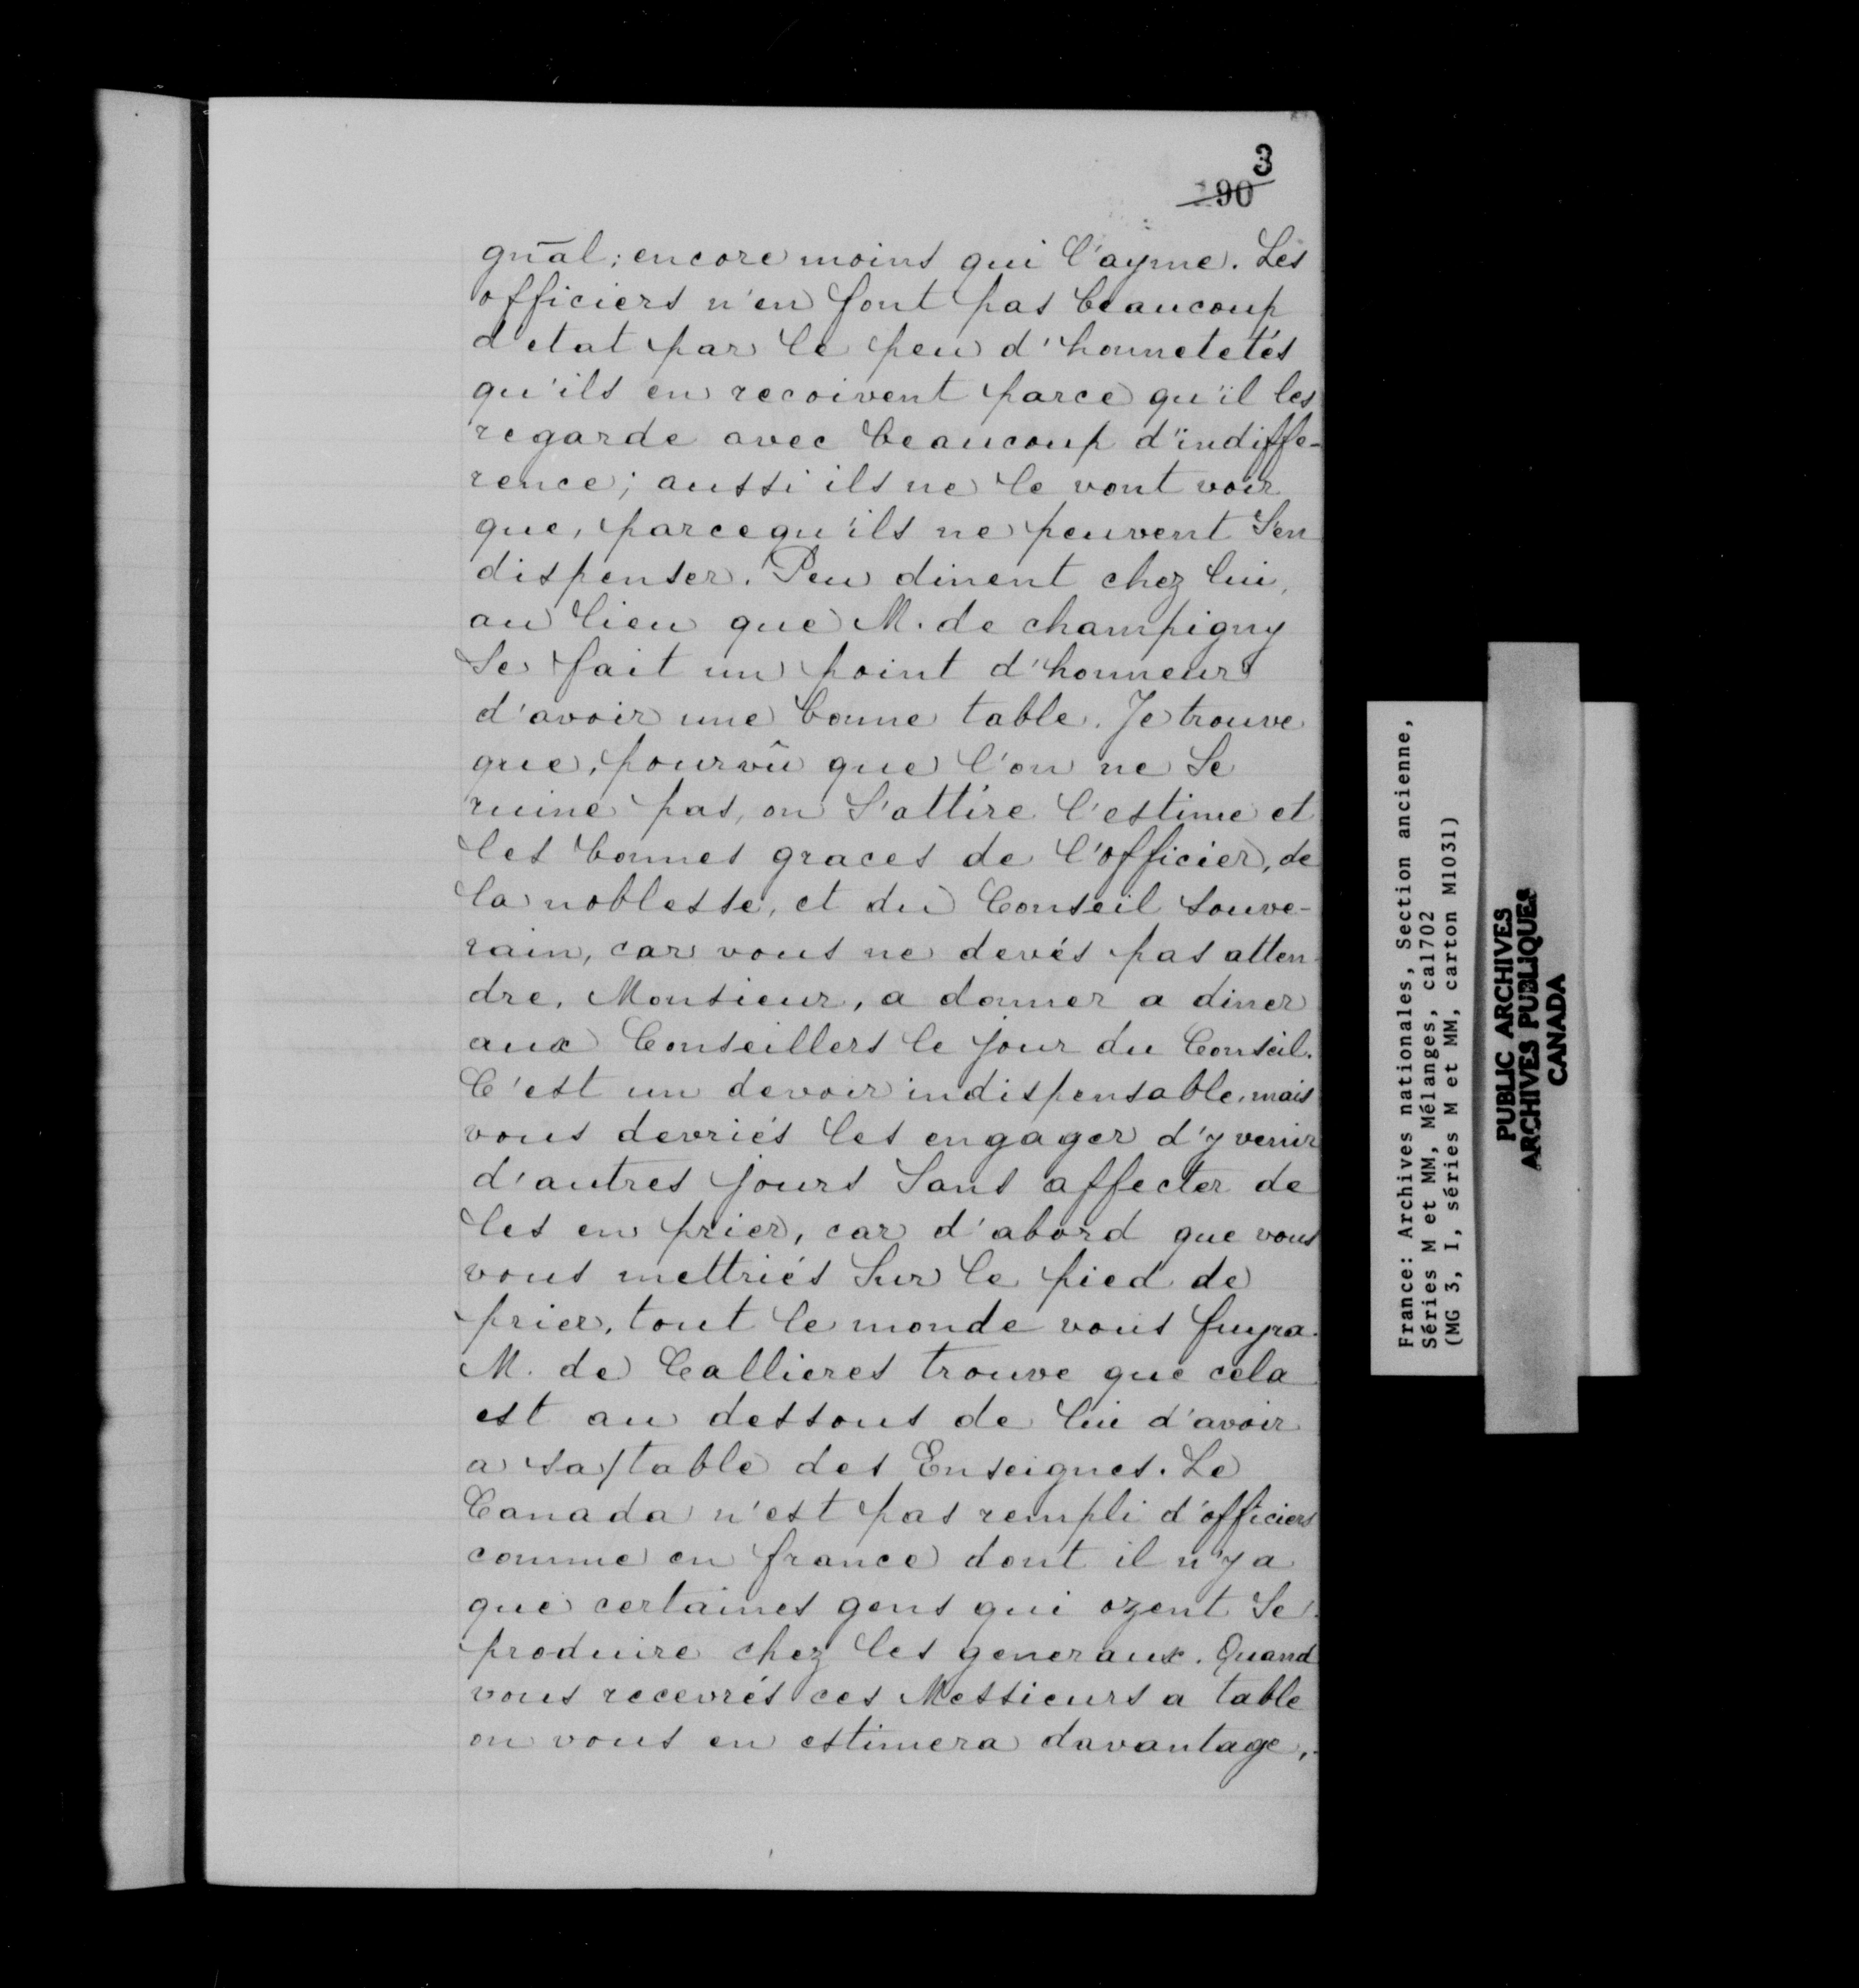 3
190
gn̄al; encore moins qui l'ayme. Les
officiers n'en font pas beaucoup
d'etat par le peu d'honnetetés
qu'ils en recoivent parce qu'il les
regarde avec beaucoup d'indiffe-
rence; aussi ils ne le vont voir
que, parcequ'ils ne peuvent s'en
dispenser. Peu dinent chez lui,
au lieu que M. de champigny
se fait un point d'honneur
d'avoir une bonne table. Je trouve
que, pourvû que l'on ne se
ruine pas, on s'attire l'estime et
les bonnes graces de l'officier, de
la noblesse, et du Conseil souve-
rain, car vous ne devés pas atten-
dre, Monsieur, a donner a diner
aux Conseillers le jour du Conseil.
C'est un devoir indispensable, mais
vous devriés les engager d'y venir
d'autres jours sans affecter de
les en prier, car d'abord que vous
vous mettriés sur le pied de
prier, tout le monde vous fuyra.
M. de Callieres trouve que cela
est au dessous de lui d'avoir
a sa/table des Enseignes. Le
Canada n'est pas rempli d'officiers
comme en france dont il n'y a
que certaines gens qui ozent se
produire chez les generaux. Quand
vous recevrés ces Messieurs a table
on vous en estimera davantage,
France: Archives nationales, Section ancienne,
Séries M et MM, Mélanges, ca1702
(MG 3, I, séries M et MM, carton M1031)
PUBLIC ARCHIVES
ARCHIVES PUBLIQUES
CANADA